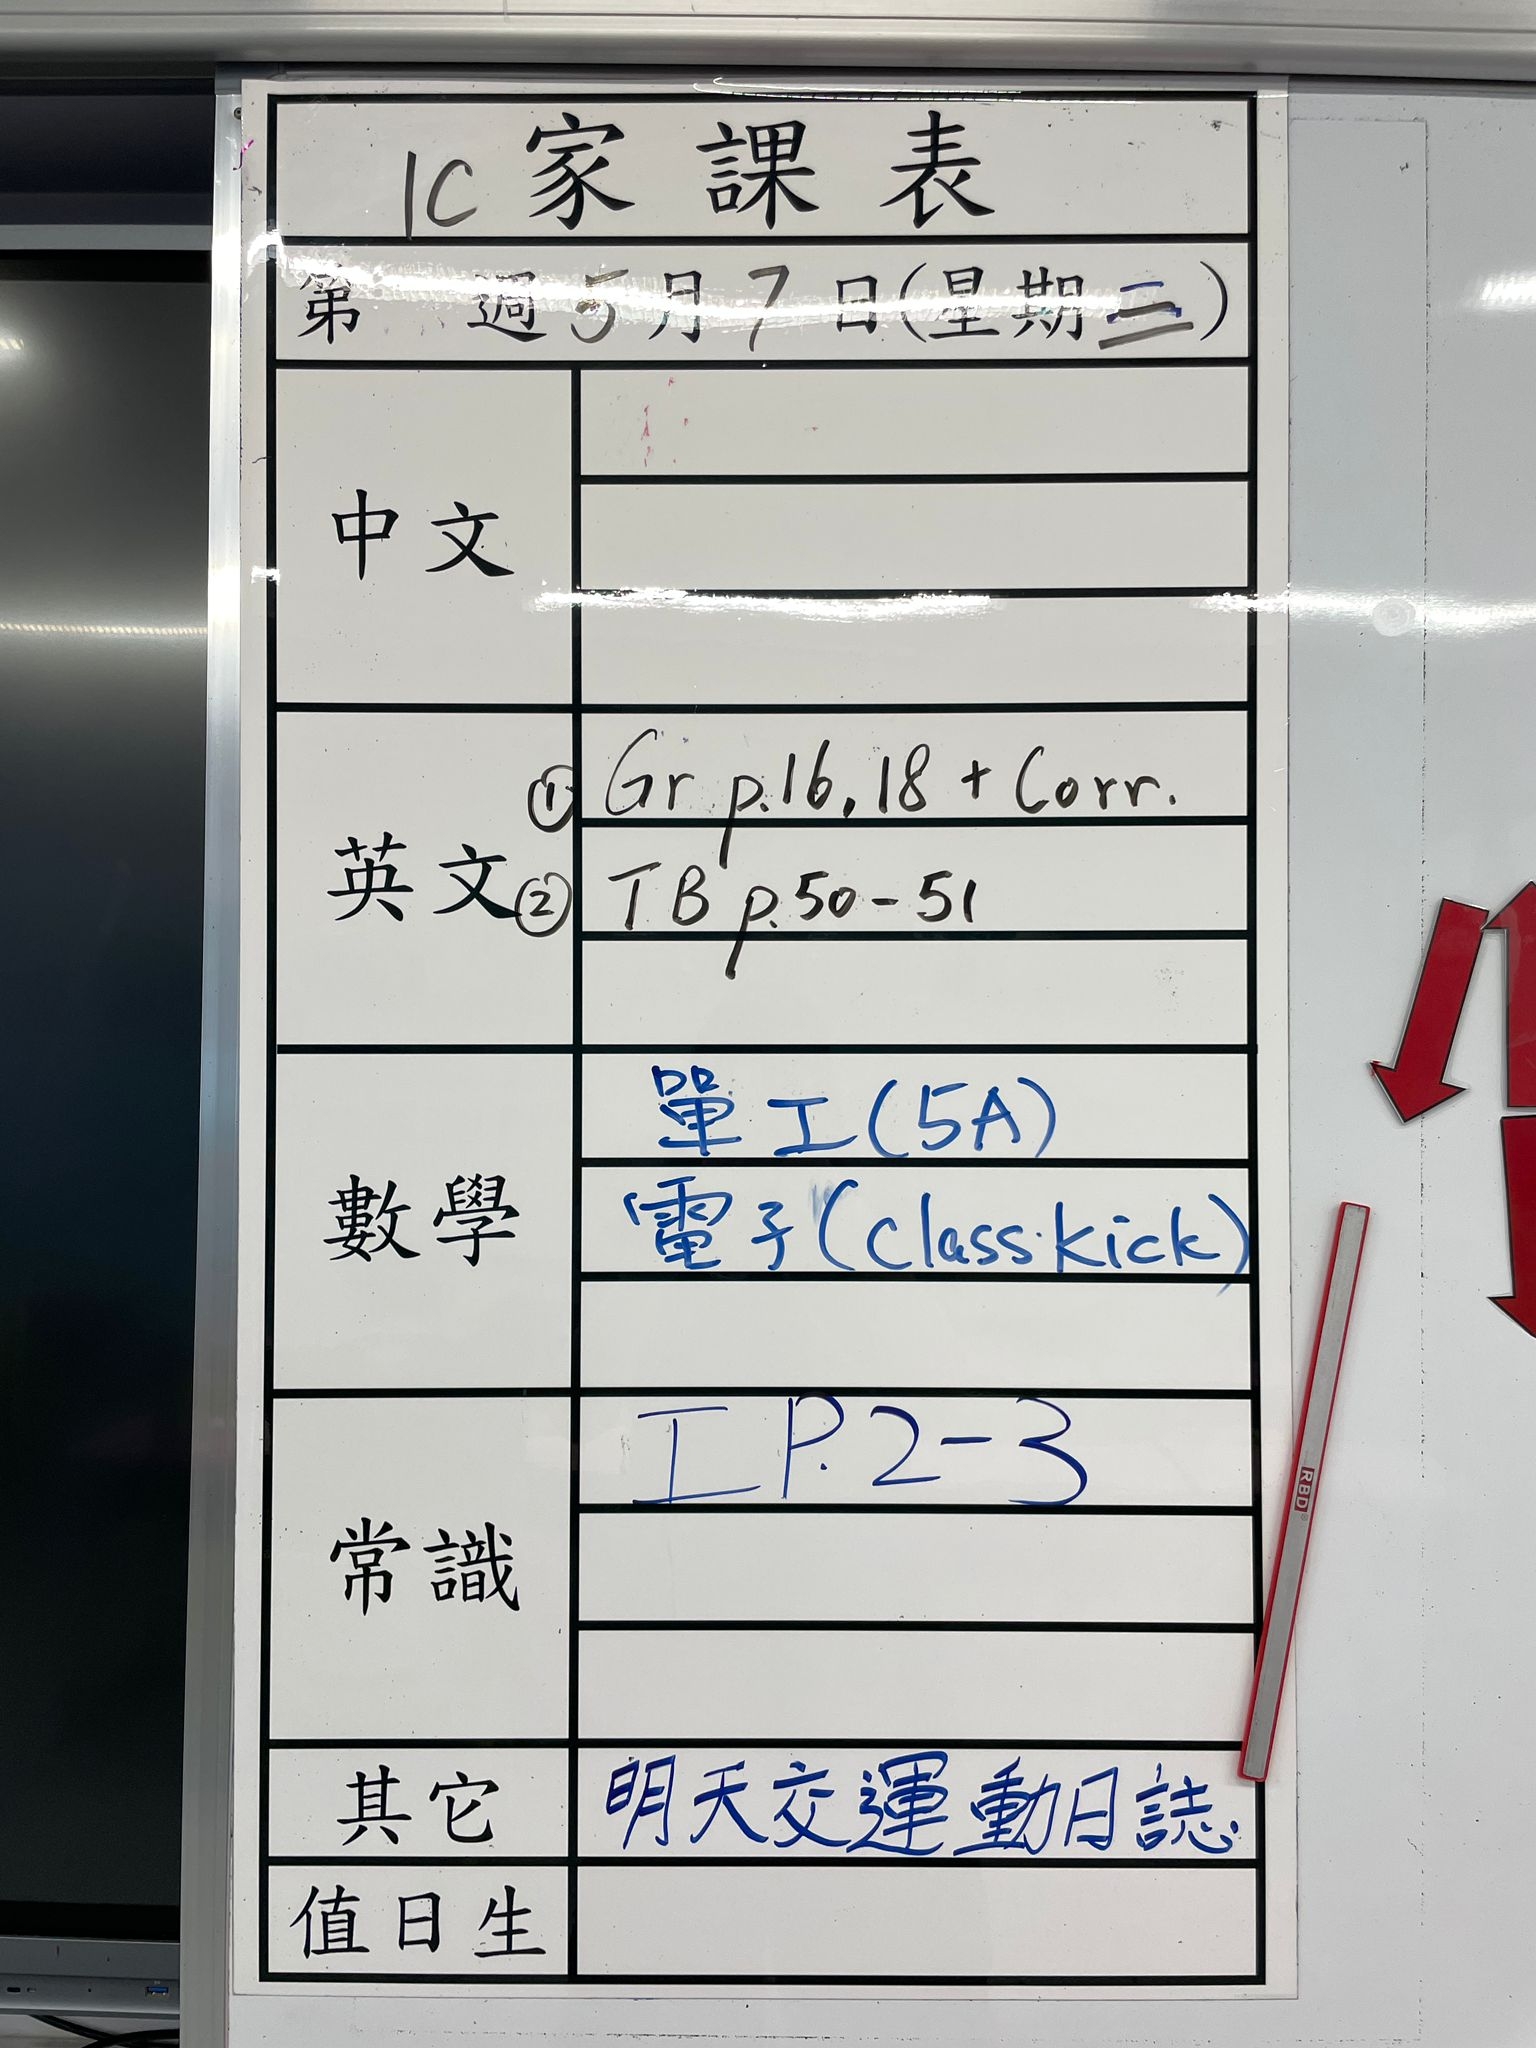 1C 家課表
第 週 5月7日(星期三)
中文
英文
① Gr p.16,18 + Corr.
② TB p.50-51
數學
單工(5A)
電子(class kick)
常識
工 P.2-3
其它
明天交運動日誌.
值日生
RBD